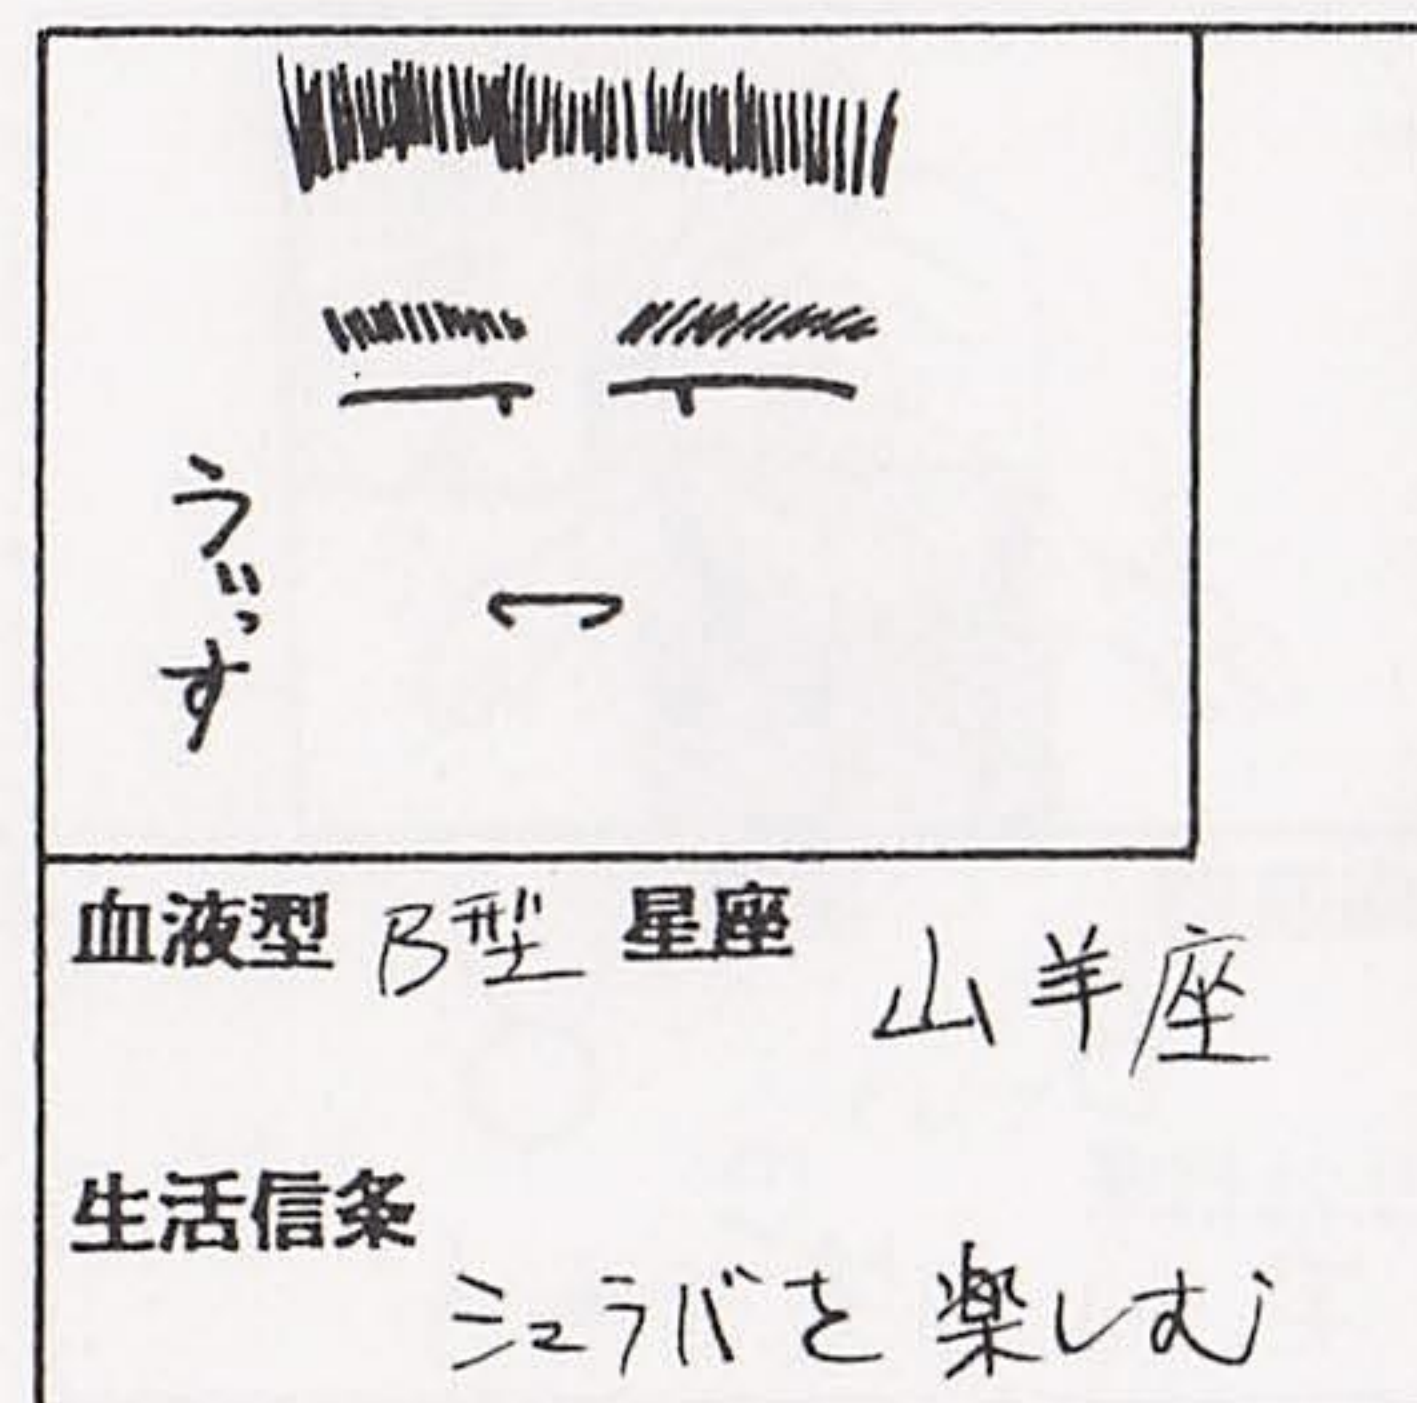 うぃっす
血液型 B型 星座 山羊座
生活信条
シュラバを楽しむ